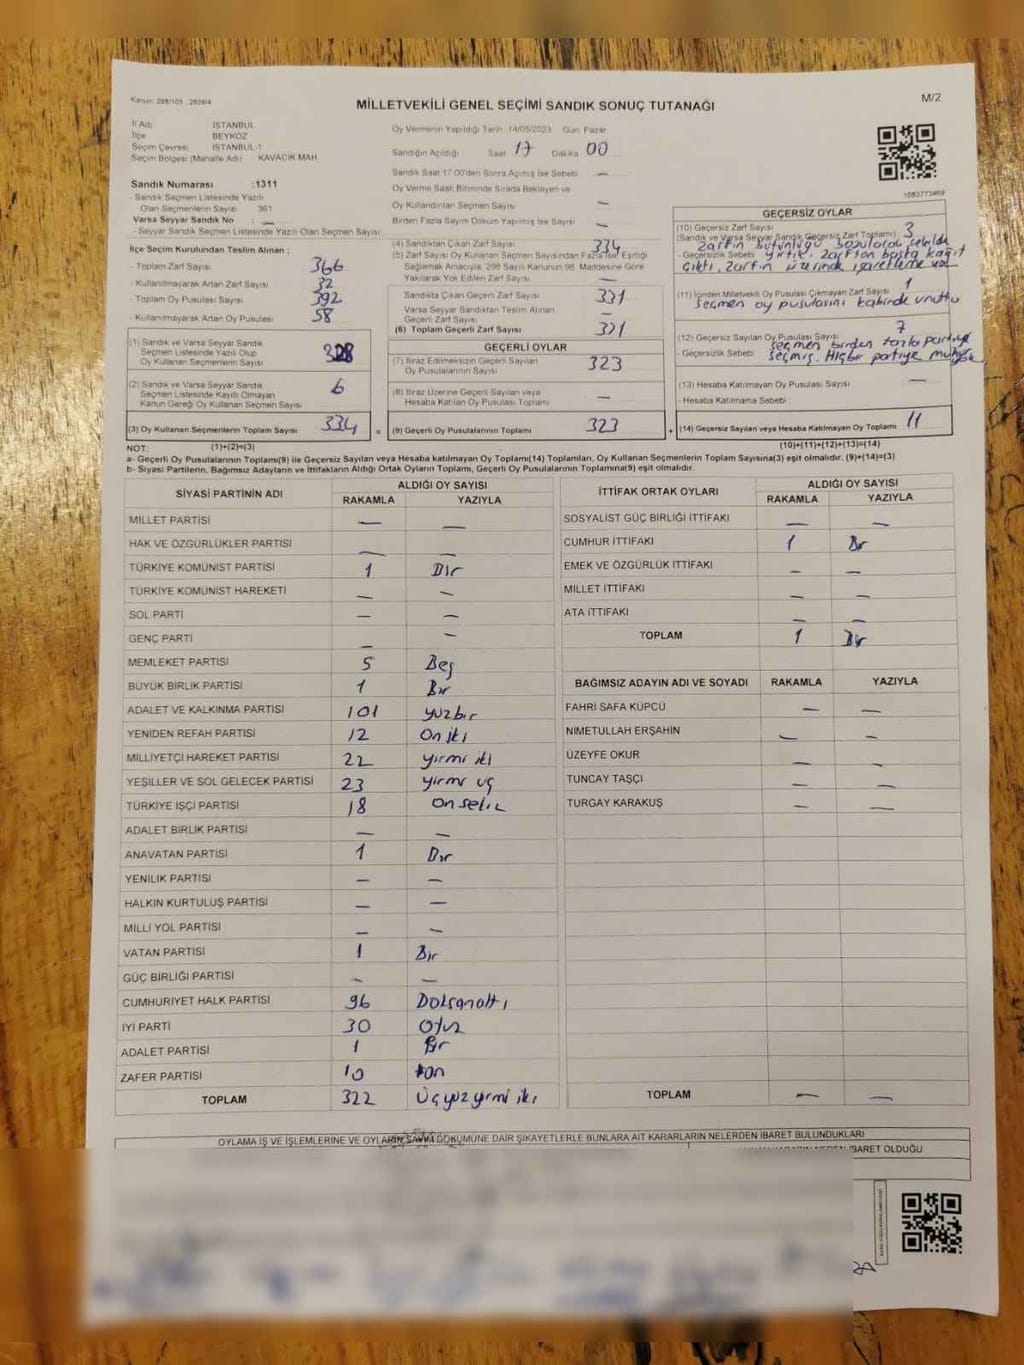 Kanun: 298/105 , 2839/4
MİLLETVEKİLİ GENEL SEÇİMİ SANDIK SONUÇ TUTANAĞI
M/2
İl Adı İSTANBUL
İlçe BEYKOZ
Seçim Çevresi İSTANBUL-1
Seçim Bölgesi (Mahalle Adı) KAVACIK MAH.
Oy Vermenin Yapıldığı Tarih 14/05/2023 Gün: Pazar
Sandığın Açıldığı Saat 17 Dakika 00
Sandık Saat 17.00'den Sonra Açılmış İse Sebebi —
Oy Verme Saati Bitiminde Sırada Bekleyen ve
Oy Kullandırılan Seçmen Sayısı —
Birden Fazla Sayım Döküm Yapılmış İse Sayısı —
1083773469
Sandık Numarası :1311
- Sandık Seçmen Listesinde Yazılı
Olan Seçmenlerin Sayısı 361
Varsa Seyyar Sandık No : —
- Seyyar Sandık Seçmen Listesinde Yazılı Olan Seçmen Sayısı:
İlçe Seçim Kurulundan Teslim Alınan ;
- Toplam Zarf Sayısı 366
- Kullanılmayarak Artan Zarf Sayısı 32
- Toplam Oy Pusulası Sayısı 392
- Kullanılmayarak Artan Oy Pusulası 58
(1) Sandık ve Varsa Seyyar Sandık
Seçmen Listesinde Yazılı Olup
Oy Kullanan Seçmenlerin Sayısı 328
(2) Sandık ve Varsa Seyyar Sandık
Seçmen Listesinde Kayıtlı Olmayan
Kanun Gereği Oy Kullanan Seçmen Sayısı 6
(3) Oy Kullanan Seçmenlerin Toplam Sayısı 334 =
(4) Sandıktan Çıkan Zarf Sayısı 334
(5) Zarf Sayısı Oy Kullanan Seçmen Sayısından Fazla İse, Eşitliği
Sağlamak Amacıyla, 298 Sayılı Kanunun 98. Maddesine Göre
Yakılarak Yok Edilen Zarf Sayısı —
Sandıkta Çıkan Geçerli Zarf Sayısı 331
Varsa Seyyar Sandıktan Teslim Alınan
Geçerli Zarf Sayısı —
(6) Toplam Geçerli Zarf Sayısı 331
GEÇERLİ OYLAR
(7) İtiraz Edilmeksizin Geçerli Sayılan
Oy Pusulalarının Sayısı 323
(8) İtiraz Üzerine Geçerli Sayılan veya
Hesaba Katılan Oy Pusulası Toplamı —
(9) Geçerli Oy Pusulalarının Toplamı 323 +
GEÇERSİZ OYLAR
(10) Geçersiz Zarf Sayısı 3
(Sandık ve Varsa Seyyar Sandık Geçersiz Zarf Toplamı)
Zarfın bütünlüğü bozulacak şekilde
- Geçersizlik Sebebi yırtık. Zarftan başka kağıt
çıktı. Zarfın üzerinde işaretleme var
(11) İçinden Milletvekili Oy Pusulası Çıkmayan Zarf Sayısı 1
Seçmen oy pusulasını kabinde unuttu
(12) Geçersiz Sayılan Oy Pusulası Sayısı 7
seçmen birden fazla partiyi
- Geçersizlik Sebebi seçmiş. Hiçbir partiye
(13) Hesaba Katılmayan Oy Pusulası Sayısı —
- Hesaba Katılmama Sebebi :
(14) Geçersiz Sayılan veya Hesaba Katılmayan Oy Toplamı 11
NOT: (1)+(2)=(3) (10)+(11)+(12)+(13)=(14)
a- Geçerli Oy Pusulalarının Toplamı(9) ile Geçersiz Sayılan veya Hesaba katılmayan Oy Toplamı(14) Toplamları, Oy Kullanan Seçmenlerin Toplam Sayısına(3) eşit olmalıdır. (9)+(14)=(3)
b- Siyasi Partilerin, Bağımsız Adayların ve İttifakların Aldığı Ortak Oyların Toplamı, Geçerli Oy Pusulalarının Toplamına(9) eşit olmalıdır.
SİYASİ PARTİNİN ADI ALDIĞI OY SAYISI
RAKAMLA YAZIYLA
MİLLET PARTİSİ — —
HAK VE ÖZGÜRLÜKLER PARTİSİ — —
TÜRKİYE KOMÜNİST PARTİSİ 1 Bir
TÜRKİYE KOMÜNİST HAREKETİ — —
SOL PARTİ — —
GENÇ PARTİ — —
MEMLEKET PARTİSİ 5 Beş
BÜYÜK BİRLİK PARTİSİ 1 Bir
ADALET VE KALKINMA PARTİSİ 101 yüzbir
YENİDEN REFAH PARTİSİ 12 on iki
MİLLİYETÇİ HAREKET PARTİSİ 22 yirmi iki
YEŞİLLER VE SOL GELECEK PARTİSİ 23 yirmi üç
TÜRKİYE İŞÇİ PARTİSİ 18 on sekiz
ADALET BİRLİK PARTİSİ — —
ANAVATAN PARTİSİ 1 Bir
YENİLİK PARTİSİ — —
HALKIN KURTULUŞ PARTİSİ — —
MİLLİ YOL PARTİSİ — —
VATAN PARTİSİ 1 Bir
GÜÇ BİRLİĞİ PARTİSİ — —
CUMHURİYET HALK PARTİSİ 96 Doksanaltı
İYİ PARTİ 30 Otuz
ADALET PARTİSİ 1 Bir
ZAFER PARTİSİ 10 on
TOPLAM 322 Üçyüzyirmi iki
İTTİFAK ORTAK OYLARI ALDIĞI OY SAYISI
RAKAMLA YAZIYLA
SOSYALİST GÜÇ BİRLİĞİ İTTİFAKI — —
CUMHUR İTTİFAKI 1 Bir
EMEK VE ÖZGÜRLÜK İTTİFAKI — —
MİLLET İTTİFAKI — —
ATA İTTİFAKI — —
TOPLAM 1 Bir
BAĞIMSIZ ADAYIN ADI VE SOYADI RAKAMLA YAZIYLA
FAHRİ SAFA KÜPCÜ — —
NİMETULLAH ERŞAHİN — —
ÜZEYFE OKUR — —
TUNCAY TAŞÇI — —
TURGAY KARAKUŞ — —
TOPLAM — —
OYLAMA İŞ VE İŞLEMLERİNE VE OYLARIN SAYIM DÖKÜMÜNE DAİR ŞİKAYETLERLE BUNLARA AİT KARARLARIN NELERDEN İBARET BULUNDUKLARI
İBARET OLDUĞU